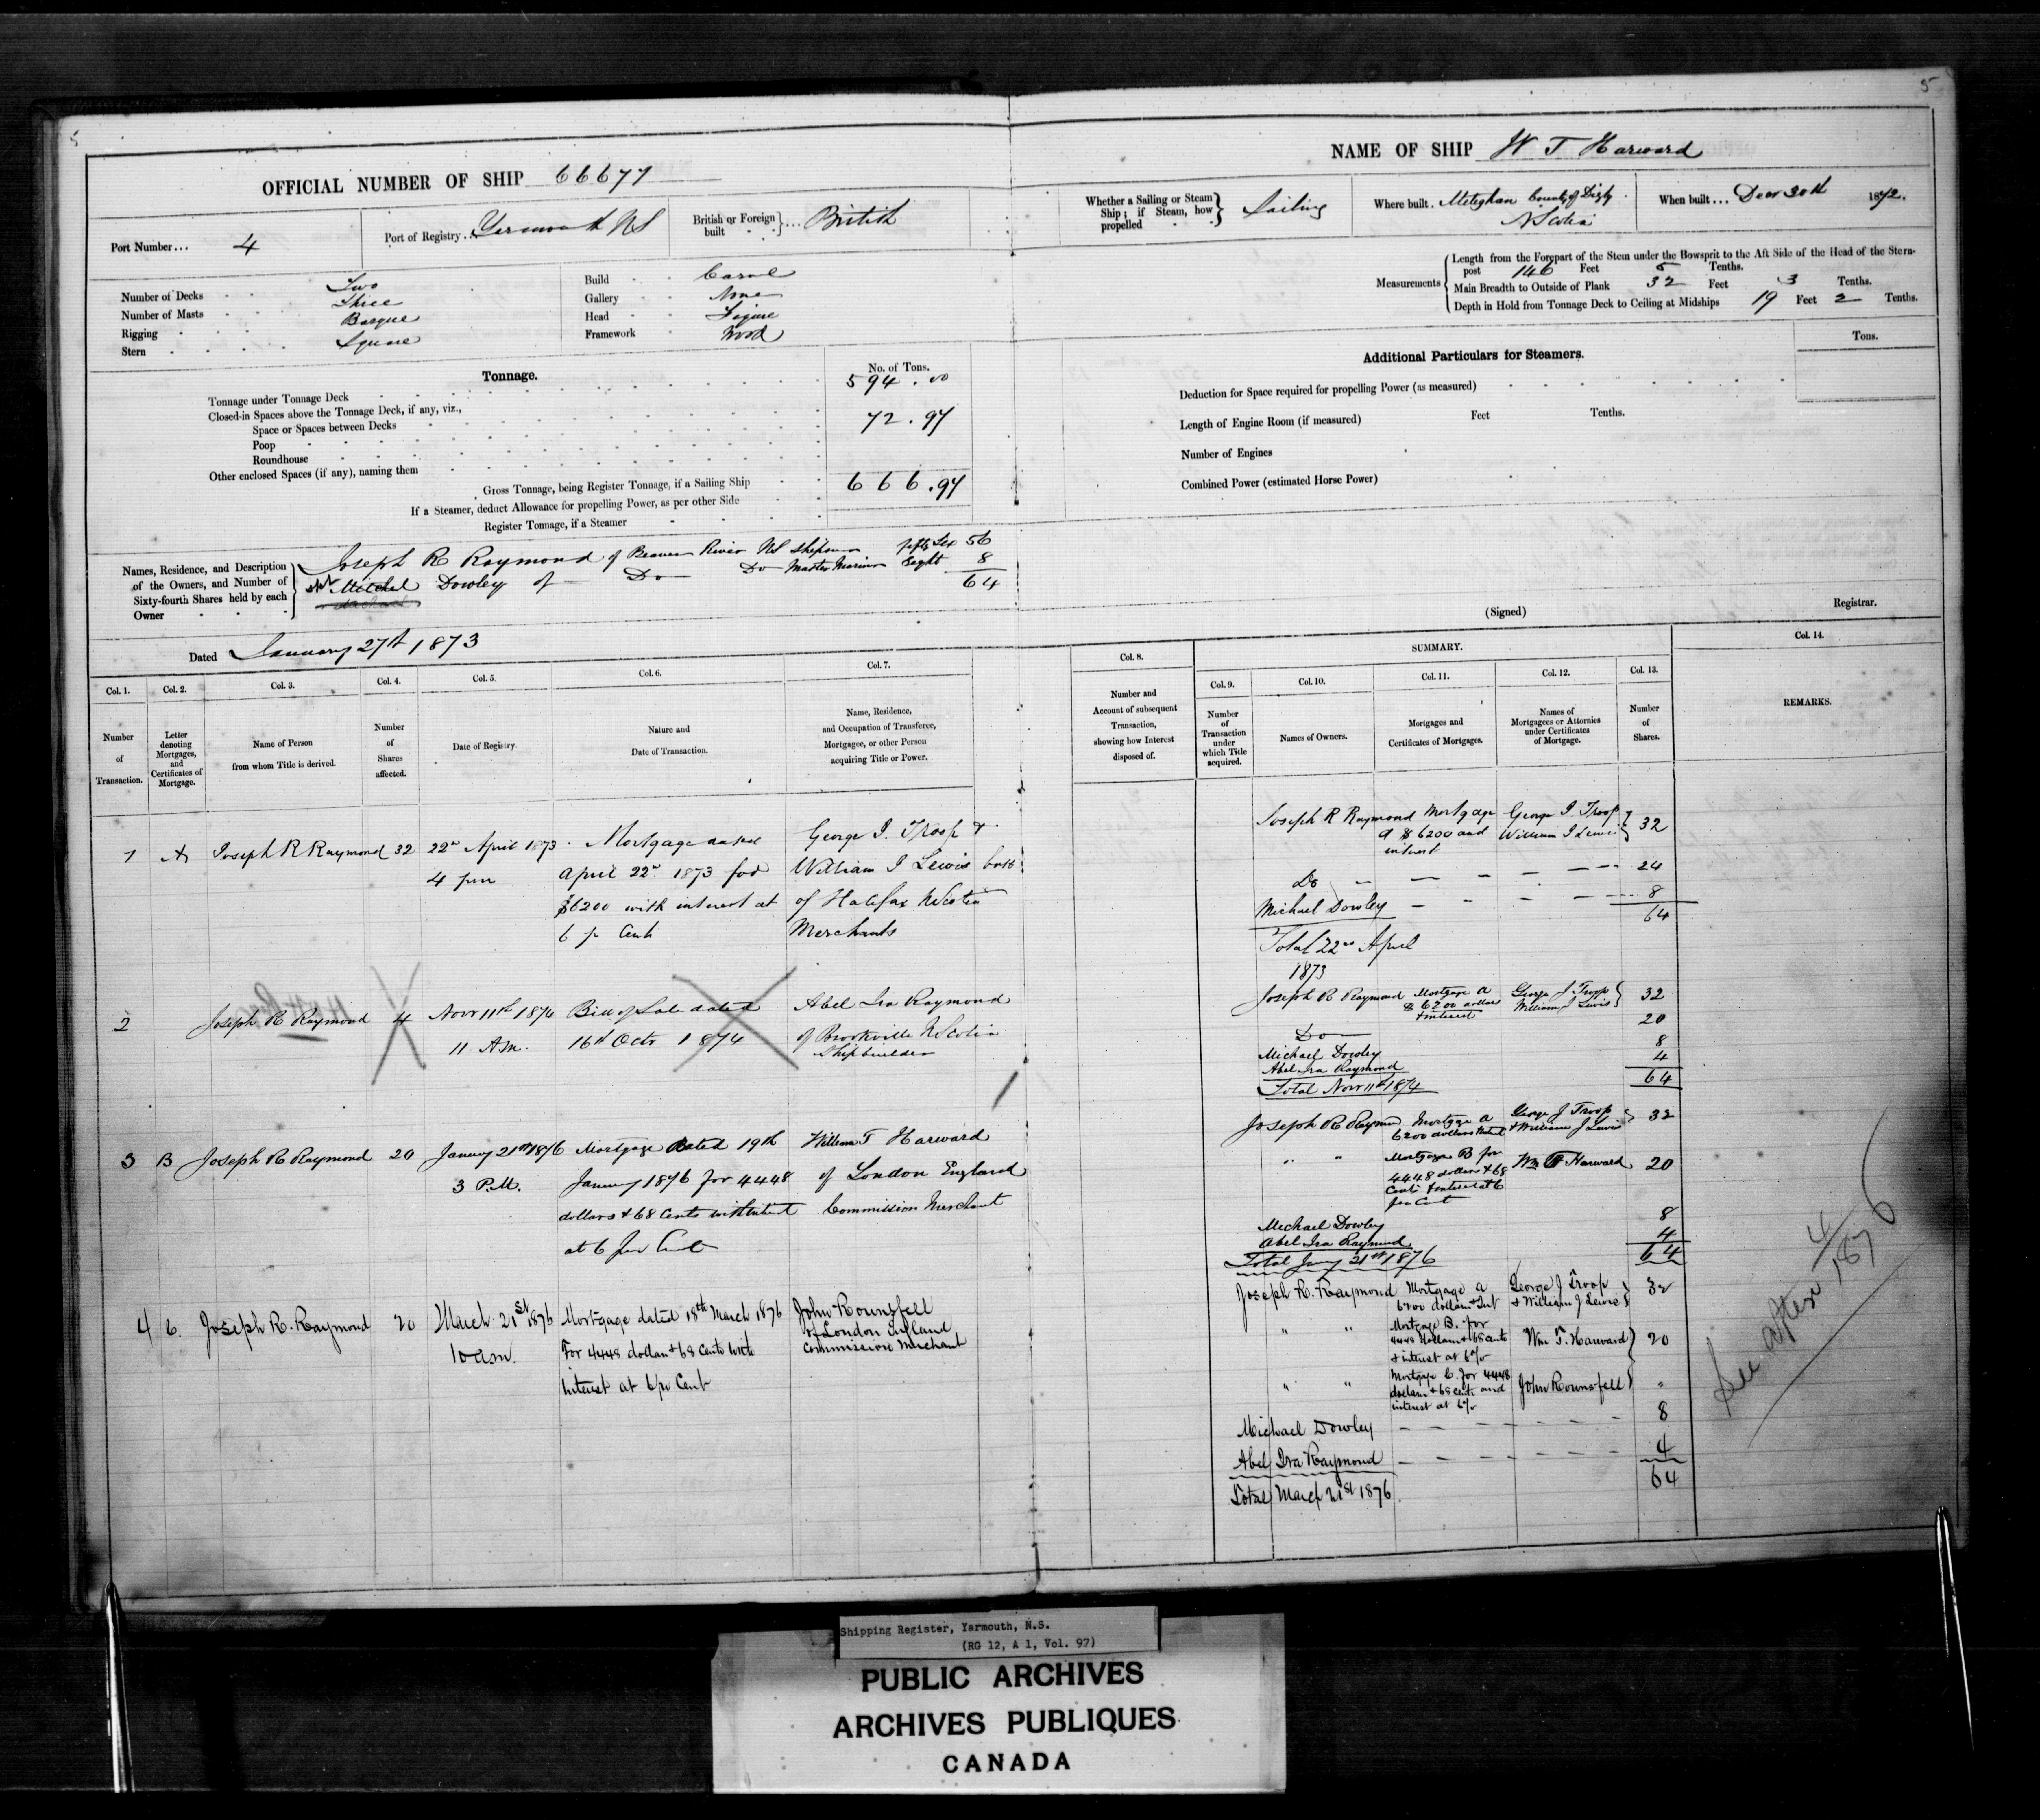 5
5
OFFICIAL NUMBER OF SHIP 66677
NAME OF SHIP W T Harward
Port Number... 4
Port of Registry... Yarmouth NS
British or Foreign built } ... British
Whether a Sailing or Steam Ship; if Steam, how propelled } Sailing
Where built. Meteghan County of Digby N Scotia
When built... Decr 30th 1872.
Number of Decks Two
Number of Masts Three
Rigging Barque
Stern Square
Build Carvel
Gallery None
Head Figure
Framework Wood
Measurements
Length from the Forepart of the Stem under the Bowsprit to the Aft Side of the Head of the Stern-
post 146 Feet 5 Tenths.
Main Breadth to Outside of Plank 32 Feet 3 Tenths.
Depth in Hold from Tonnage Deck to Ceiling at Midships 19 Feet 2 Tenths.
Tonnage.
No. of Tons.
Tonnage under Tonnage Deck 594.00
Closed-in Spaces above the Tonnage Deck, if any, viz.,
Space or Spaces between Decks 72.97
Poop
Roundhouse
Other enclosed Spaces (if any), naming them
Gross Tonnage, being Register Tonnage, if a Sailing Ship 666.97
If a Steamer, deduct Allowance for propelling Power, as per other Side
Register Tonnage, if a Steamer
Additional Particulars for Steamers.
Tons.
Deduction for Space required for propelling Power (as measured)
Length of Engine Room (if measured) Feet Tenths.
Number of Engines
Combined Power (estimated Horse Power)
Names, Residence, and Description
of the Owners, and Number of
Sixty-fourth Shares held by each
Owner
Joseph R Raymond of Beaver River NS Shipowner fifty six 56
Mitchel Dowley of Do Do Master Mariner Eight 8
64
(Signed) Registrar.
Dated January 27th 1873
Col. 1.
Number of Transaction.
Col. 2.
Letter denoting Mortgages, and Certificates of Mortgage.
Col. 3.
Name of Person from whom Title is derived.
Col. 4.
Number of Shares affected.
Col. 5.
Date of Registry
Col. 6.
Nature and Date of Transaction.
Col. 7.
Name, Residence, and Occupation of Transferee, Mortgagee, or other Person acquiring Title or Power.
Col. 8.
Number and Account of subsequent Transaction, showing how Interest disposed of.
SUMMARY.
Col. 9.
Number of Transaction under which Title acquired.
Col. 10.
Names of Owners.
Col. 11.
Mortgages and Certificates of Mortgages.
Col. 12.
Names of Mortgagees or Attornies under Certificates of Mortgage.
Col. 13.
Number of Shares.
Col. 14.
REMARKS.
1 A Joseph R Raymond 32
22nd April 1873
4 pm
Mortgage dated
April 22nd 1873 for
$6200 with interest at
6 pr Cent
George J. Troop &
William J Lewis both
of Halifax N Scotia
Merchants
Joseph R Raymond Mortgage A $6200 and interest George J. Troop William J Lewis 32
Do 24
Michael Dowley 8
64
Total 22nd April
1873
2 Joseph R Raymond 4
Novr 11th 1874
11 Am.
Bill of Sale dated
16th Octr 1874
Abel Ira Raymond
of Brookville N Scotia
Shipbuilder
Joseph R Raymond Mortgage A $6200 dollars & interest George J Troop William J Lewis 32
Do 20
Michael Dowley 8
Abel Ira Raymond 4
Total Novr 11th 1874 64
3 B Joseph R Raymond 20
January 21st 1876
3 P.M.
Mortgage dated 19th
January 1876 for 4448
dollars & 68 Cents with interest
at 6 per Cent
William T Harward
of London England
Commission Merchant
Joseph R Raymond Mortgage A 6200 dollars George J Troop & William J Lewis 32
" " Mortgage B for 4448 dollars & 68 Cents & interest at 6 per Cent Wm T Harward 20
Michael Dowley 8
Abel Ira Raymond 4
Total Jany 21st 1876 64
4 C. Joseph R. Raymond 20
March 21st 1876
10 am.
Mortgage dated 18th March 1876
For 4448 dollars & 68 Cents with
interest at 6 pr Cent
John Rounsfell
of London England
Commission Merchant
Joseph R. Raymond Mortgage A 6200 dollars & Int George J Troop & William J Lewis 32
" " Mortgage B. for 4448 dollars & 68 Cents & interest at 6% Wm T. Harward 20
" " Mortgage C. for 4448 dollars & 68 Cents and interest at 6% John Rounsfell "
Michael Dowley 8
Abel Ira Raymond 4
Total March 21st 1876. 64
See after 4/1876
Shipping Register, Yarmouth, N.S.
(RG 12, A 1, Vol. 97)
PUBLIC ARCHIVES
ARCHIVES PUBLIQUES
CANADA